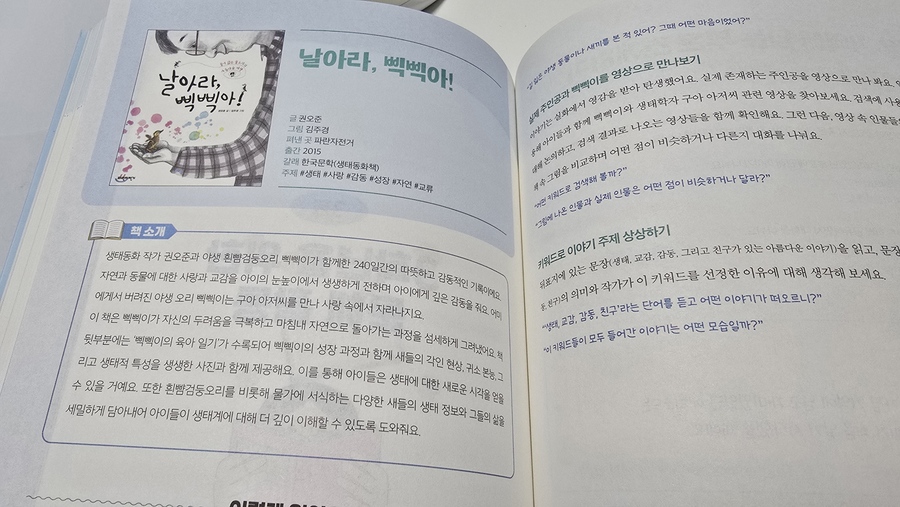 날아라,
삑삑아!
날아라, 삑삑아!
글 권오준
그림 김주경
펴낸 곳 파란자전거
출간 2015
갈래 한국문학(생태동화책)
주제 #생태 #사랑 #감동 #성장 #자연 #교류
책 소개
생태동화 작가 권오준과 야생 흰뺨검둥오리 삑삑이가 함께한 240일간의 따뜻하고 감동적인 기록이에요.
자연과 동물에 대한 사랑과 교감을 아이의 눈높이에서 생생하게 전하며 아이에게 깊은 감동을 줘요. 어미
에게서 버려진 야생 오리 삑삑이는 구아 아저씨를 만나 사랑 속에서 자라나지요.
이 책은 삑삑이가 자신의 두려움을 극복하고 마침내 자연으로 돌아가는 과정을 섬세하게 그려냈어요. 책
뒷부분에는 '삑삑이의 육아 일기'가 수록되어 삑삑이의 성장 과정과 함께 새들의 각인 현상, 귀소 본능, 그
리고 생태적 특성을 생생한 사진과 함께 제공해요. 이를 통해 아이들은 생태에 대한 새로운 시각을 얻을
수 있을 거예요. 또한 흰뺨검둥오리를 비롯해 물가에 서식하는 다양한 새들의 생태 정보와 그들의 삶을
세밀하게 담아내어 아이들이 생태계에 대해 더 깊이 이해할 수 있도록 도와줘요.
야생 동물이나 새끼를 본 적 있어? 그때 어떤 마음이었어?"
실제 주인공과 삑삑이를 영상으로 만나보기
이야기는 실화에서 영감을 받아 탄생했어요. 실제 존재하는 주인공을 영상으로 만나 봐요.
통해 아이들과 함께 삑삑이와 생태학자 구아 아저씨 관련 영상을 찾아보세요. 검색에 사용
대해 논의하고, 검색 결과로 나오는 영상들을 함께 확인해요. 그런 다음, 영상 속 인물들
책 속 그림을 비교하며 어떤 점이 비슷하거나 다른지 대화를 나눠요.
"어떤 키워드로 검색해 볼까?"
"그림에 나온 인물과 실제 인물은 어떤 점이 비슷하거나 달라?"
키워드로 이야기 주제 상상하기
뒤표지에 있는 문장(생태, 교감, 감동, 그리고 친구가 있는 아름다운 이야기)을 읽고, 문장
동, 친구)의 의미와 작가가 이 키워드를 선정한 이유에 대해 생각해 보세요.
"'생태, 교감, 감동, 친구'라는 단어를 듣고 어떤 이야기가 떠오르니?"
"이 키워드들이 모두 들어간 이야기는 어떤 모습일까?"